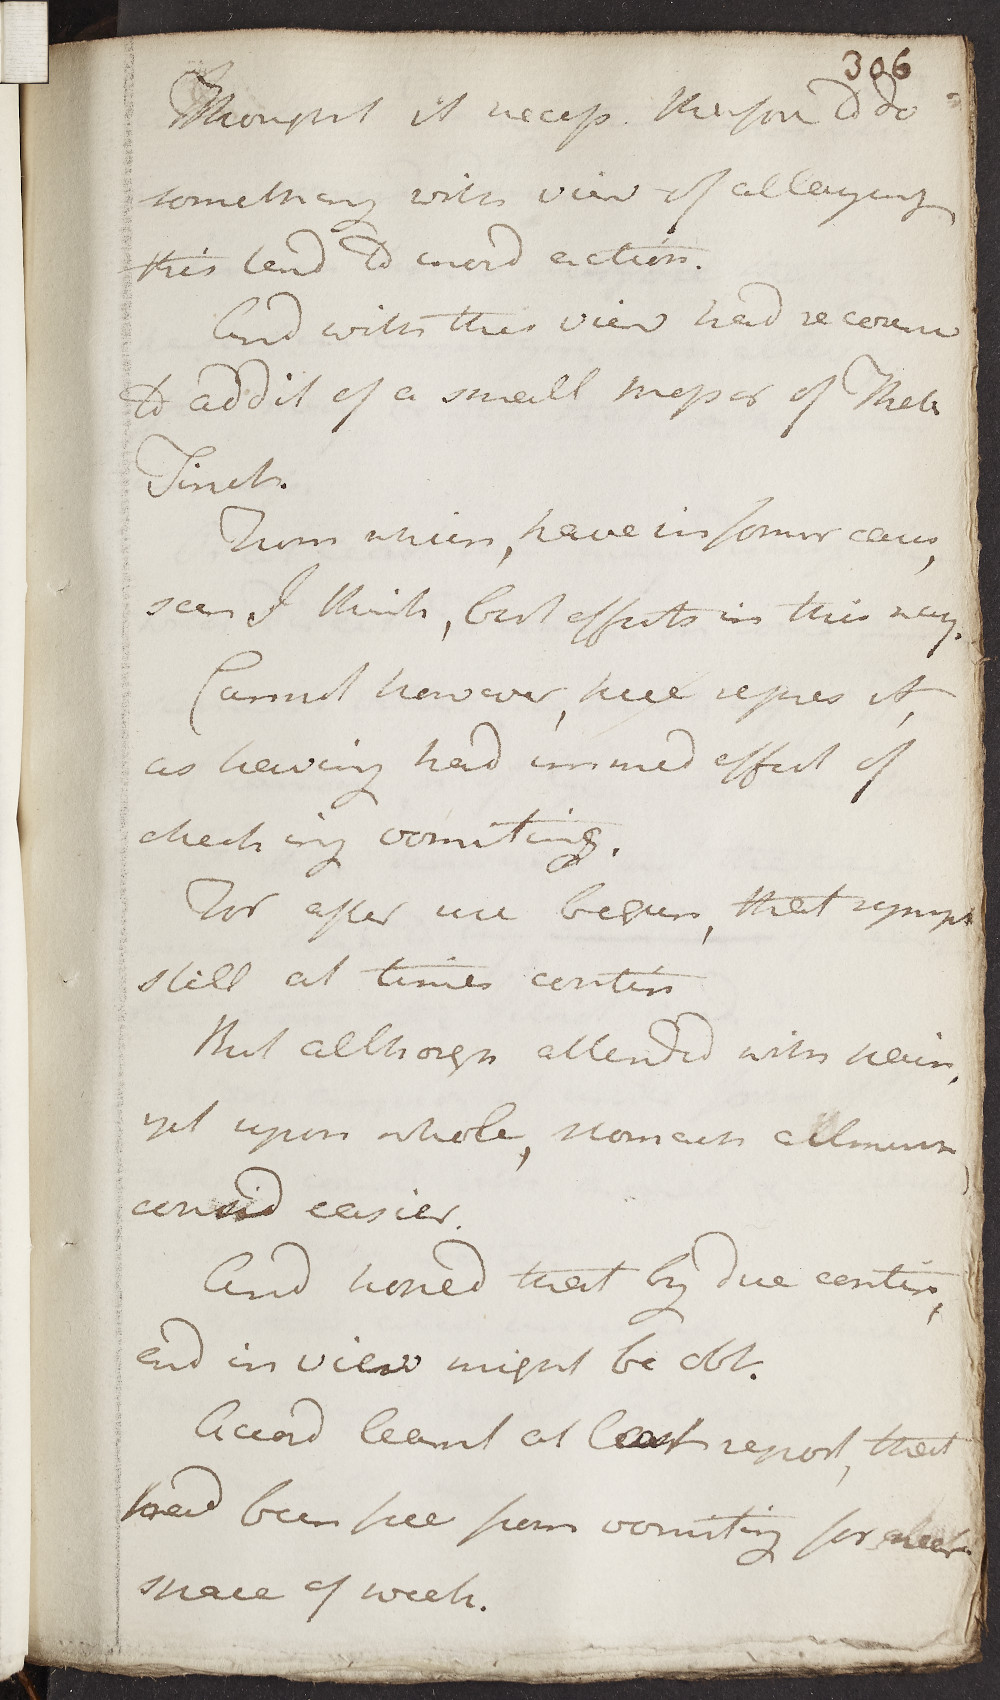 306
Thought it necess. therfore to do
something with view of allaying
this tend to inord action.
And with this view had recourse
to addit of a small proper of Theb
Tinct.
From which, have in former cases,
seen I think, best effects in this way.
Cannot however, here repres it,
as having had immed effect of
checking vomiting.
For after use begun, that sympt
still at times contin
But although attended with pain,
yet upon whole, stomach ailments
consid easier.
And hoped that by due contin,
end in view might be obt.
Accord learnt at last report, that
had been free from vomiting for near
space of week.